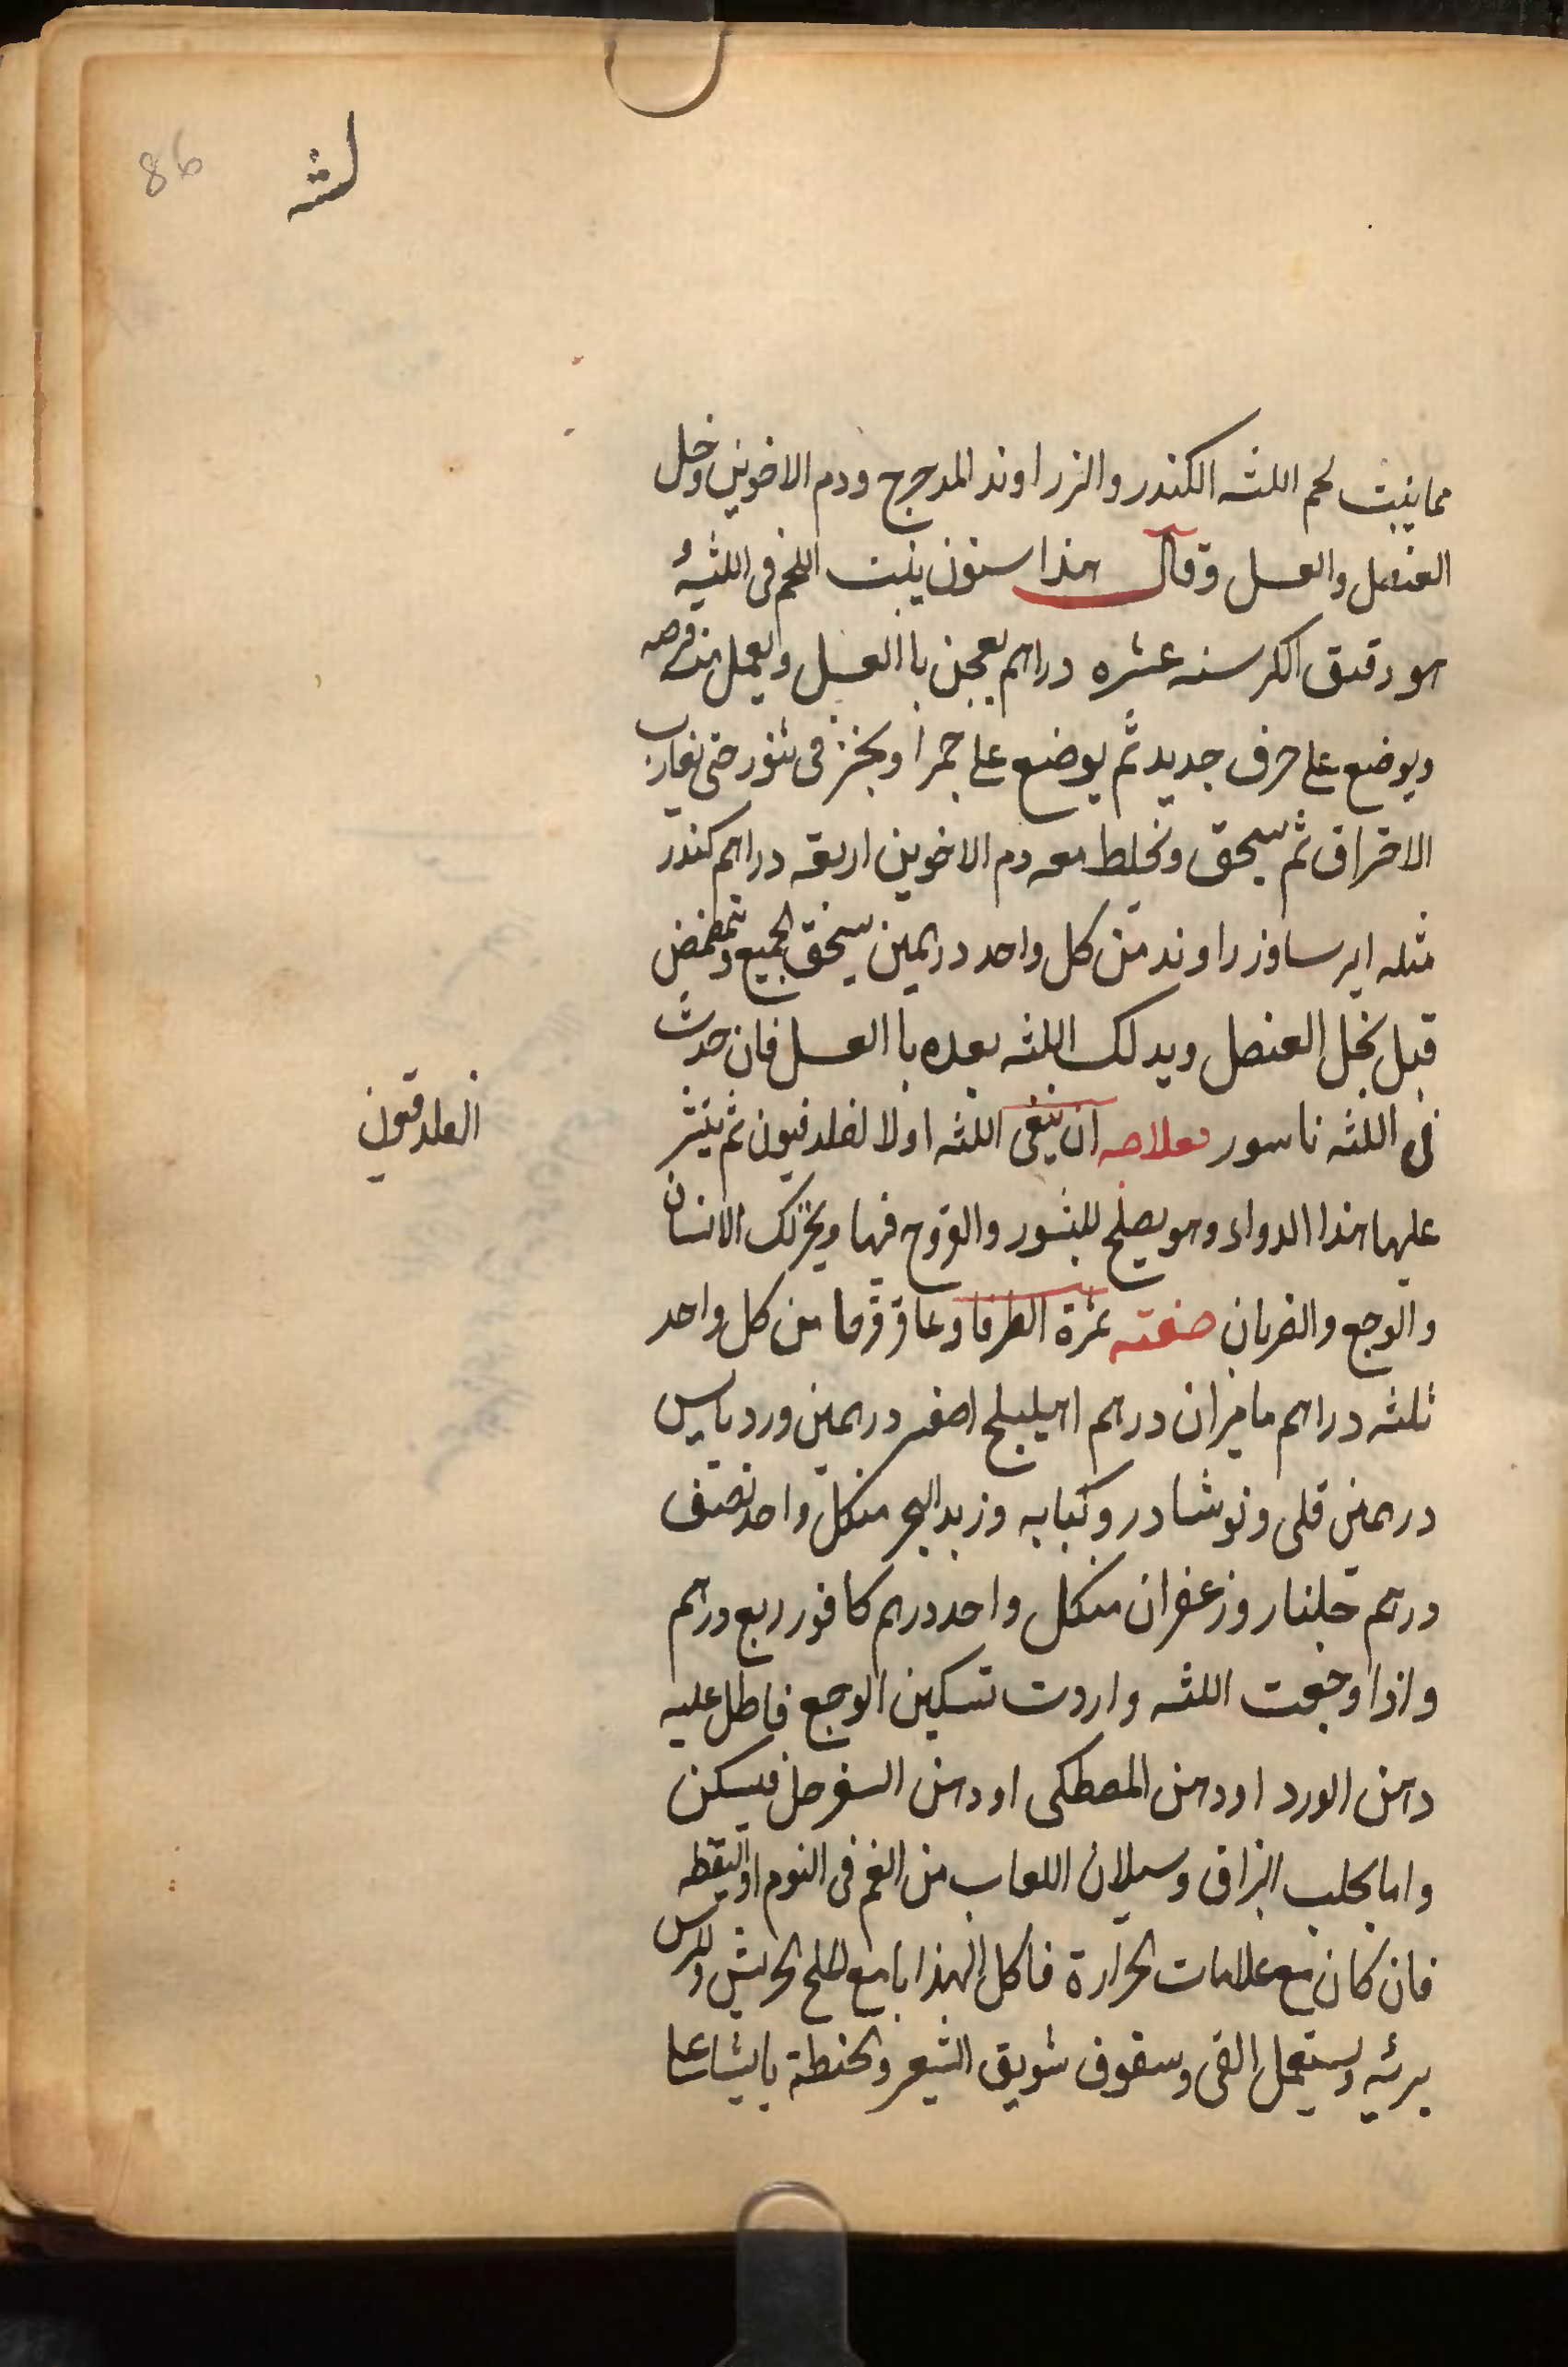 86
لثه
مما ينبت لحم اللثه الكندر والزراوند المدحرج ودم الاخوين وخل
العنصل والعسل وقال هذا سنون ينبت اللحم فى اللثه
هو دقيق الكرسنه عشره دراهم يعجن باالعسل ويعمل منه قرصه
ويوضع على خزف جديد ثم يوضع على جمر او يخبز فى تنور حتى يقارب
الاحتراق ثم يسحق ويخلط معه دم الاخوين اربعه دراهم كندر
مثله ايرسا وزراوند من كل واحد درهمين يسحق الجميع ويتمضمض
قبل بخل العنصل ويدلك اللثه بعده باالعسل فان حدث
فى اللثه ناسور فعلاجه ان ينقى اللثه اولا لفلدفيون ثم ينثر
الفلدفيون
عليها هذا الدواء وهو يصلح للبثور والقروح فيها ويحرك الانسان
والوجع والضربان صفته ثمرة الطرفا وعاقرقرحا من كل واحد
ثلثه دراهم ماميران درهم اهيليلج اصفر درهمين ورد يابس
درهمين قلى ونوشادر وكبابه وزبد البحر منكل واحد نصف
درهم جلنار وزعفران منكل واحد درهم كافور ربع درهم
واذا وجعت اللثه واردت تسكين الوجع فاطل عليه
دهن الورد او دهن المصطكى او دهن السفرجل فيسكن
واما يجلب البزاق وسيلان اللعاب من الفم فى النوم او اليقظه
فان كان مع علامات الحرارة فاكل الهندبا مع الملح الجريش
يرئيه ويستعمل القى وسفوف سويق الشعير والحنطة